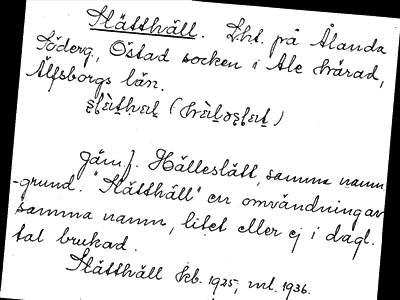 Slätthväll. Lht. på Ålanda
Söderg., Östad socken i Ale härad,
Älfsborgs län.
Jämf. Hälleslätt, samma namn
-grund. "Slätthväll" en omvändning av
samma namn, litet eller ej i dagl.
tal brukad.
Slätthväll kb. 1925, ml. 1936.